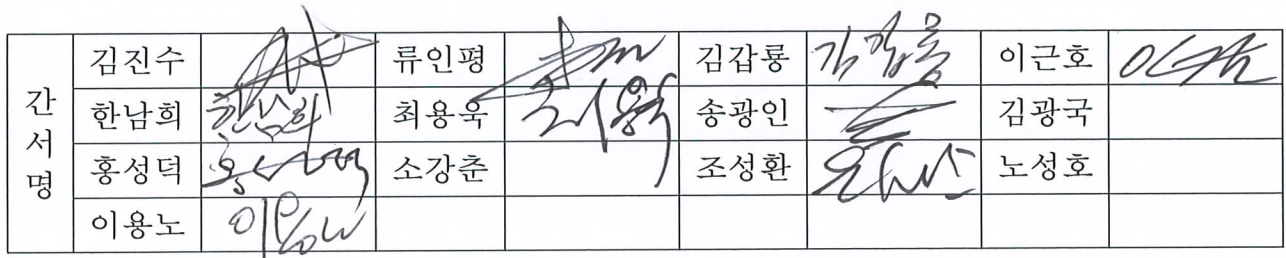 간서명
김진수 류인평 김갑룡 김갑룡 이근호
한남희 한남희 최용욱 최용욱 송광인 김광국
홍성덕 소강춘 조성환 노성호
이용노 이용노